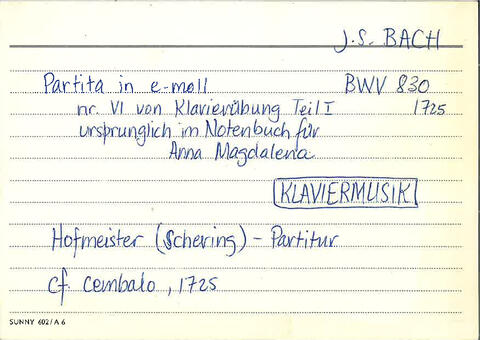 J.S. BACH
Partita in e-moll BWV 830
nr. VI von Klavierübung Teil I 1725
ursprunglich im Notenbuch für
Anna Magdalena
KLAVIERMUSIK
Hofmeister (Schering) - Partitur
cf. Cembalo, 1725
SUNNY 602/A 6